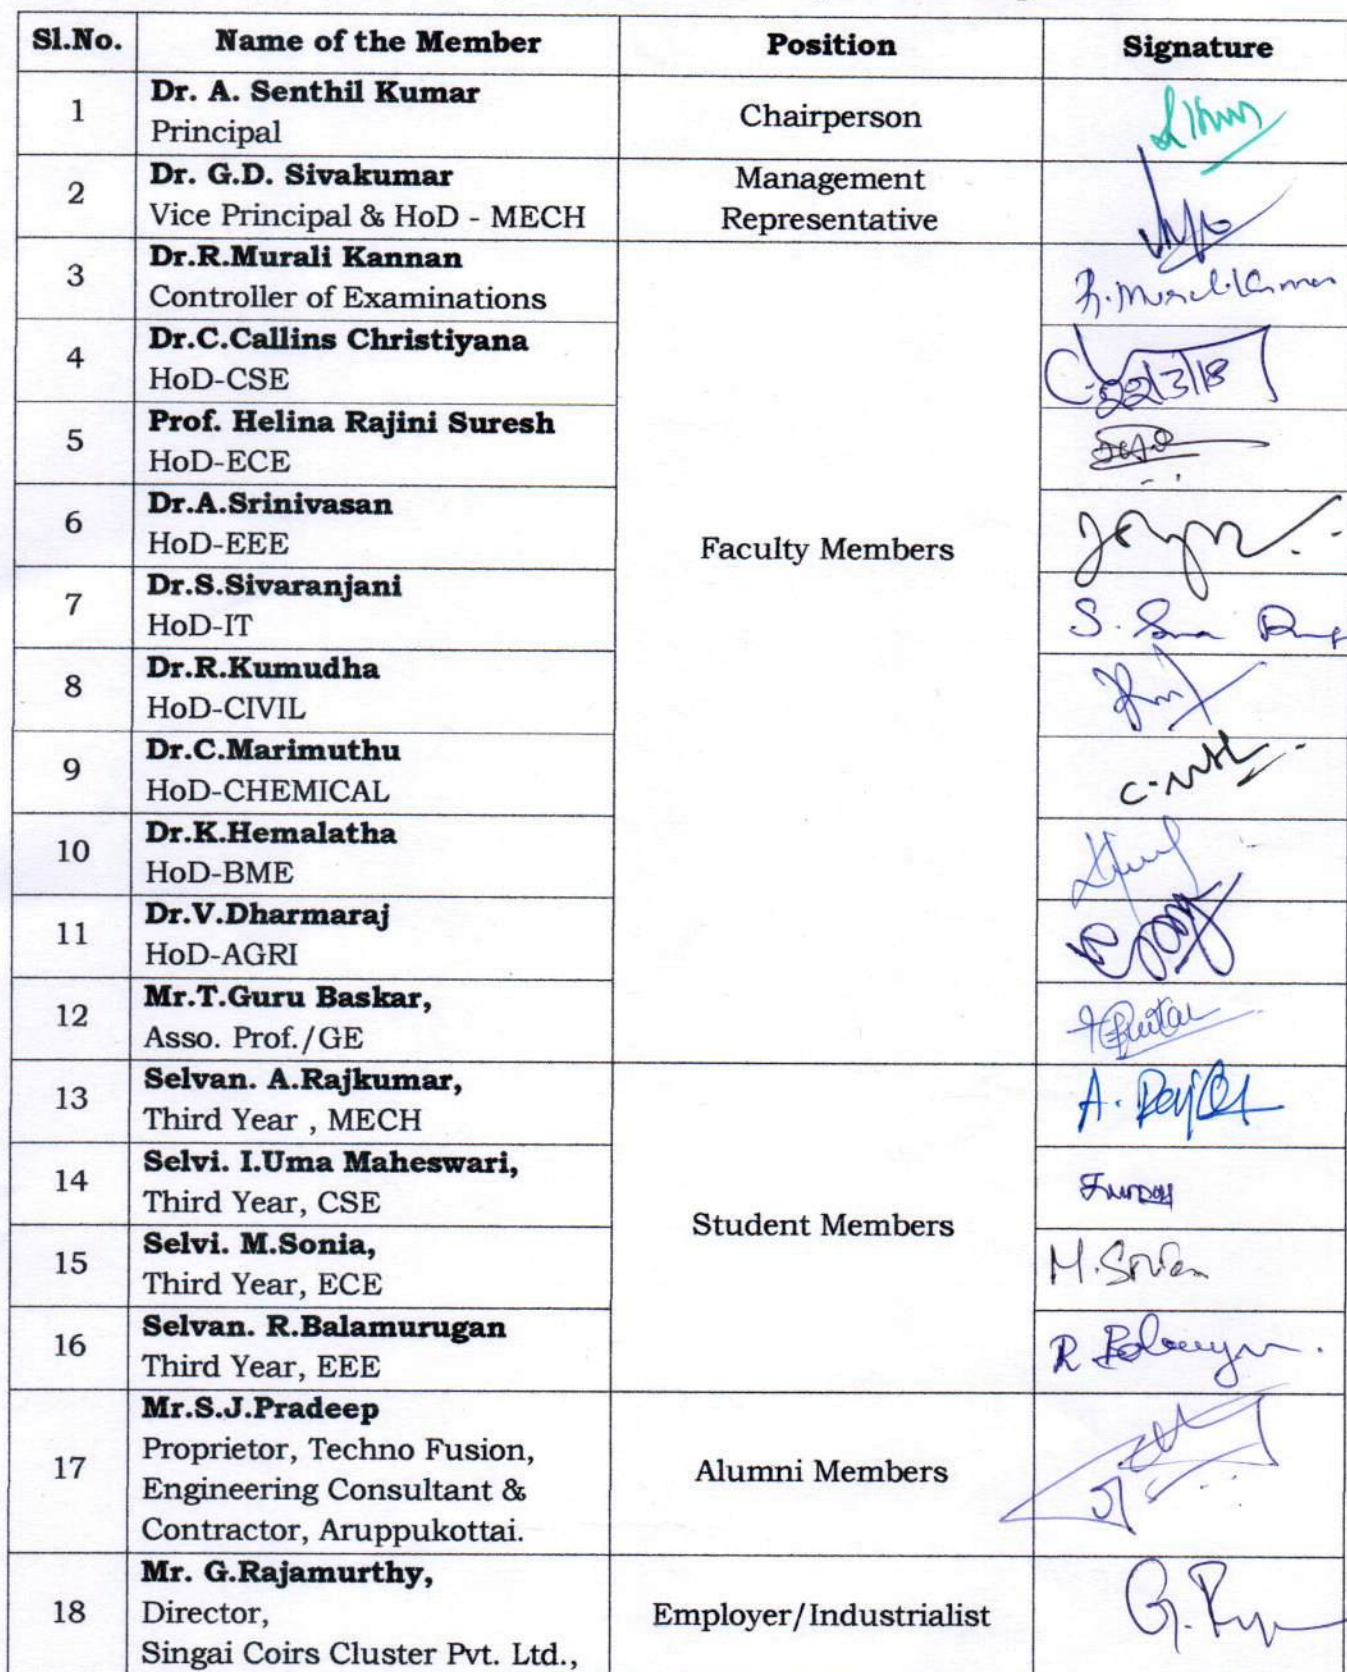 Sl.No. Name of the Member Position Signature
1 Dr. A. Senthil Kumar
Principal Chairperson
2 Dr. G.D. Sivakumar
Vice Principal & HoD - MECH Management
Representative
3 Dr.R.Murali Kannan
Controller of Examinations
4 Dr.C.Callins Christiyana
HoD-CSE
22/3/18
5 Prof. Helina Rajini Suresh
HoD-ECE
6 Dr.A.Srinivasan
HoD-EEE
Faculty Members
7 Dr.S.Sivaranjani
HoD-IT
8 Dr.R.Kumudha
HoD-CIVIL
9 Dr.C.Marimuthu
HoD-CHEMICAL
10 Dr.K.Hemalatha
HoD-BME
11 Dr.V.Dharmaraj
HoD-AGRI
12 Mr.T.Guru Baskar,
Asso. Prof./GE
13 Selvan. A.Rajkumar,
Third Year , MECH
14 Selvi. I.Uma Maheswari,
Third Year, CSE
Student Members
15 Selvi. M.Sonia,
Third Year, ECE
M.Sonia
16 Selvan. R.Balamurugan
Third Year, EEE
17 Mr.S.J.Pradeep
Proprietor, Techno Fusion,
Engineering Consultant &
Contractor, Aruppukottai.
Alumni Members
18 Mr. G.Rajamurthy,
Director,
Singai Coirs Cluster Pvt. Ltd.,
Employer/Industrialist